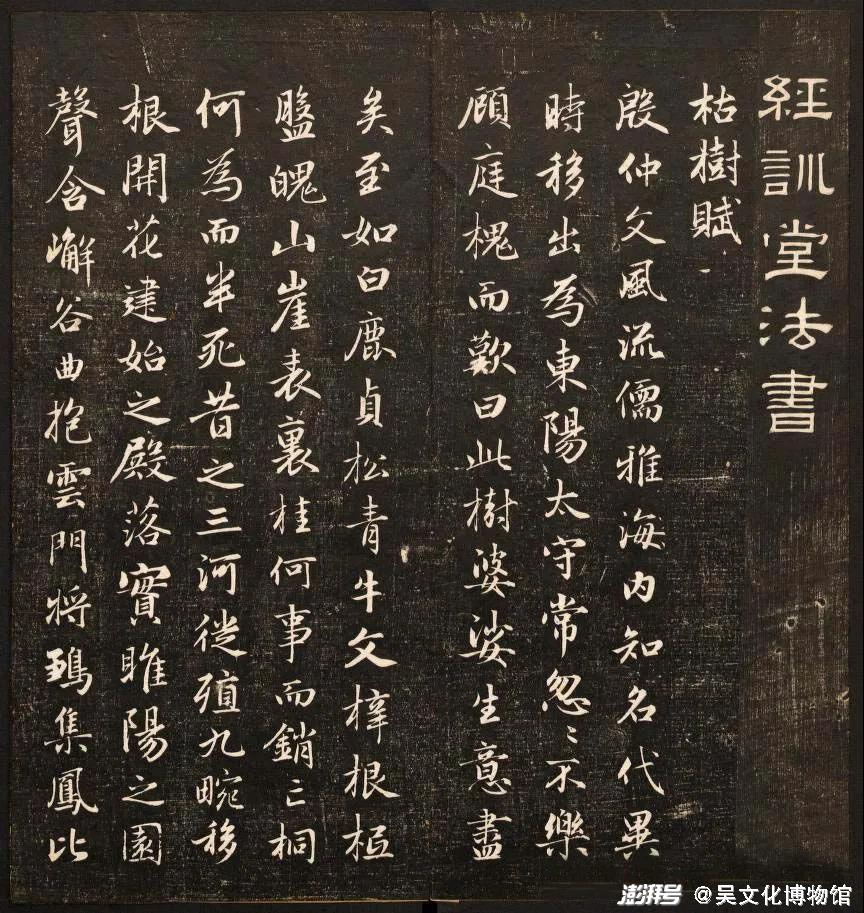 經訓堂法書
枯樹賦
殷仲文風流儒雅海内知名代異
時移出為東陽太守常忽〻不樂
顧庭槐而歎曰此樹婆娑生意盡
矣至如白鹿貞松青牛文梓根柢
盤魄山崖表裏桂何事而銷亡桐
何為而半死昔之三河徙殖九畹移
根開花建始之殿落實睢陽之園
聲含嶰谷曲抱雲門将鶵集鳳比
澎湃号 @吴文化博物馆